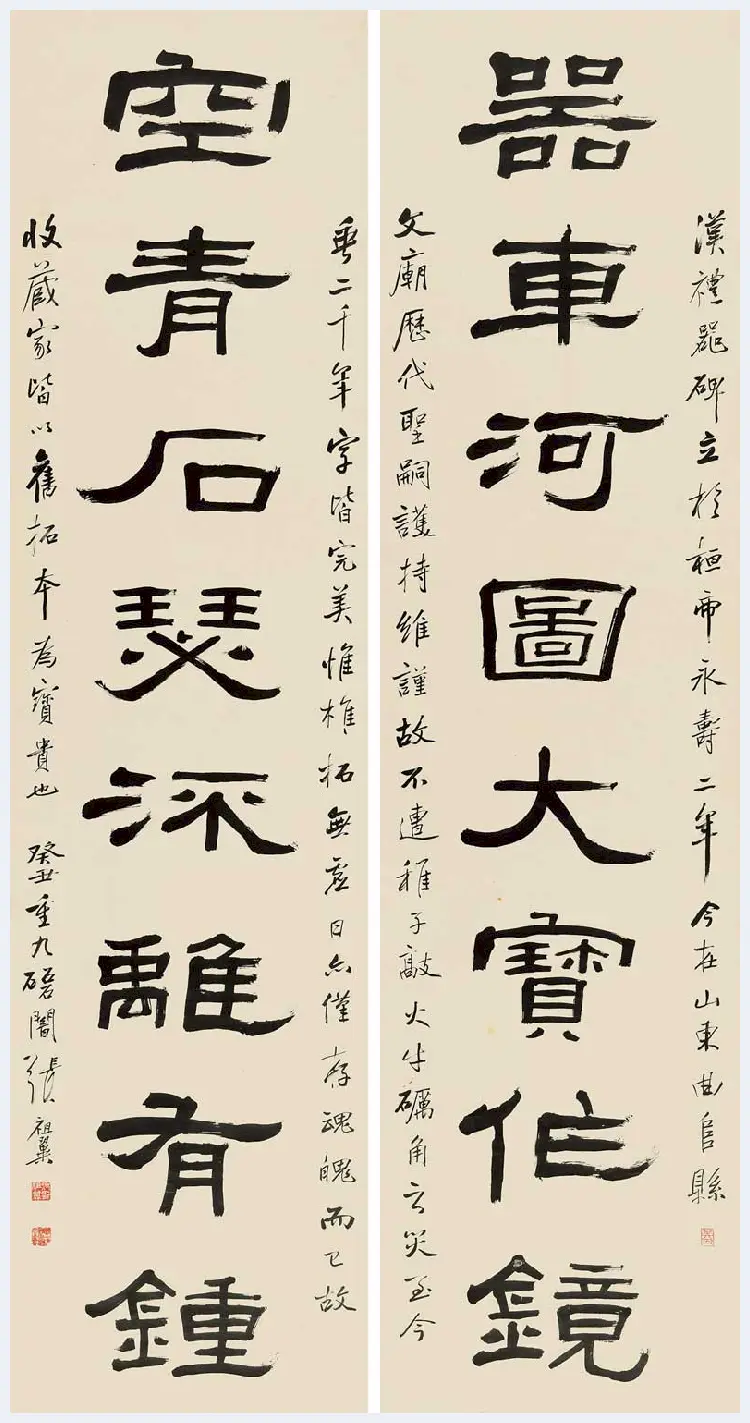 漢禮器碑立於桓帝永壽二年今在山東曲阜縣
器車河圖大寶作鏡
文廟歷代聖嗣護持維謹故不遭稚子敲火牛礪角之災至今
垂二千年字皆完美惟椎拓無虛日亦僅存魂魄而已故
空青石瑟深離有鍾
收藏家皆以舊拓本為寶貴也 癸丑重九磊闇張祖翼